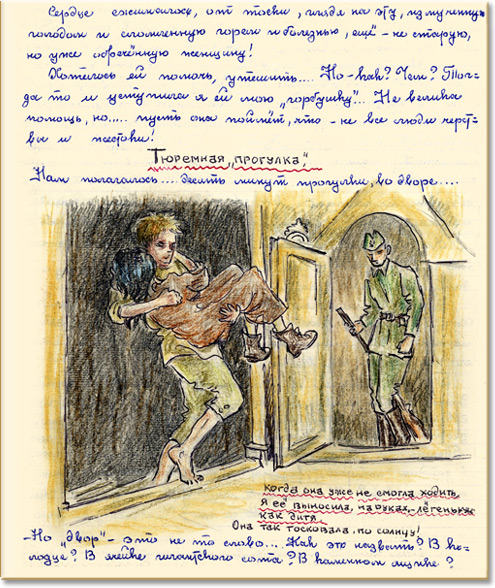 Сердце сжималось, от тоски, глядя на эту, измученную
голодом и сломленную горем и болезнью, ещё - не старую,
но уже обречённую женщину!
Хотелось ей помочь, утешить.... Но - как? Чем? Тог-
да то и уступила я ей мою „горбушку"... Не велика
помощь, но..... пусть она поймёт, что - не все люди черст-
вы и жестоки!
Тюремная „прогулка".
Нам полагалось.... десять минут прогулки, во дворе....
Когда она уже не смогла ходить,
я её выносила, на руках, лёгенькую
как дитя.
Она так тосковала, по солнцу!
-Но „двор" - это не то слово... Как это назвать? В ко-
лодце? В ячейке гигантского сота? В каменном ящике?